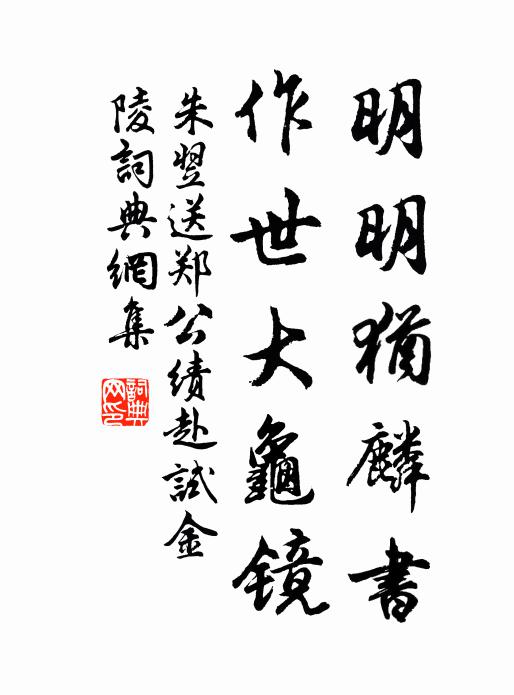 明明猶麟書
作世大龜镜
朱翌送郑公績赴試金
陵詞典網集
詞典
网印